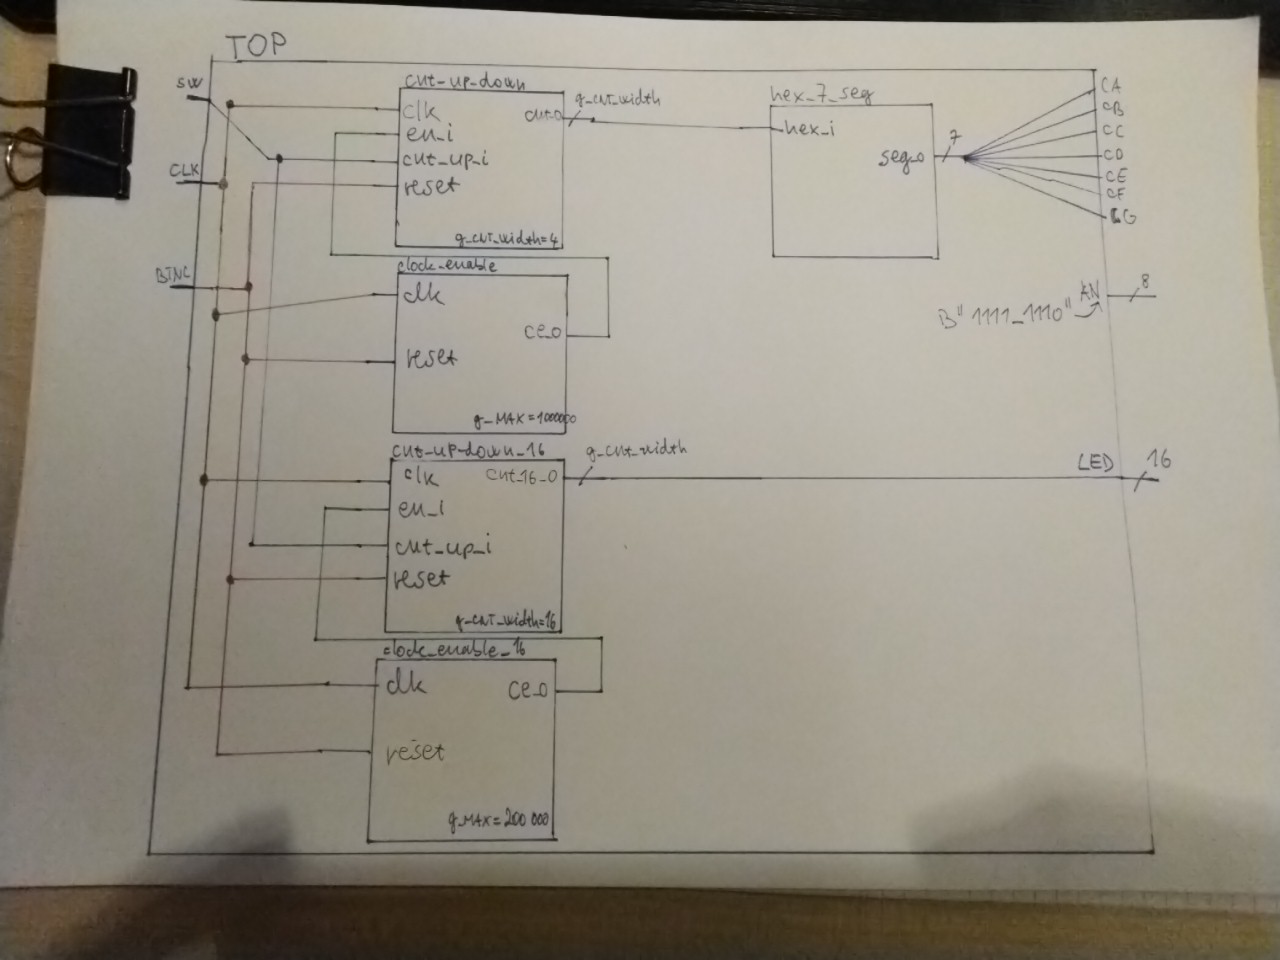 TOP
SW
CLK
BTNC
cnt-up-down
clk
en_i
cnt_up_i
reset
cnt_o
g_CNT_width=4
g_CNT_width
hex_7_seg
hex_i
seg_o
7
CA
CB
CC
CD
CE
CF
CG
AN
8
B"1111_1110"
clock_enable
clk
reset
ce_o
g_MAX=1000000
cnt-up-down_16
clk
en_i
cnt_up_i
reset
cnt_16_o
g_CNT_width=16
g_cnt_width
LED
16
clock_enable_16
clk
reset
ce_o
g_MAX=200 000